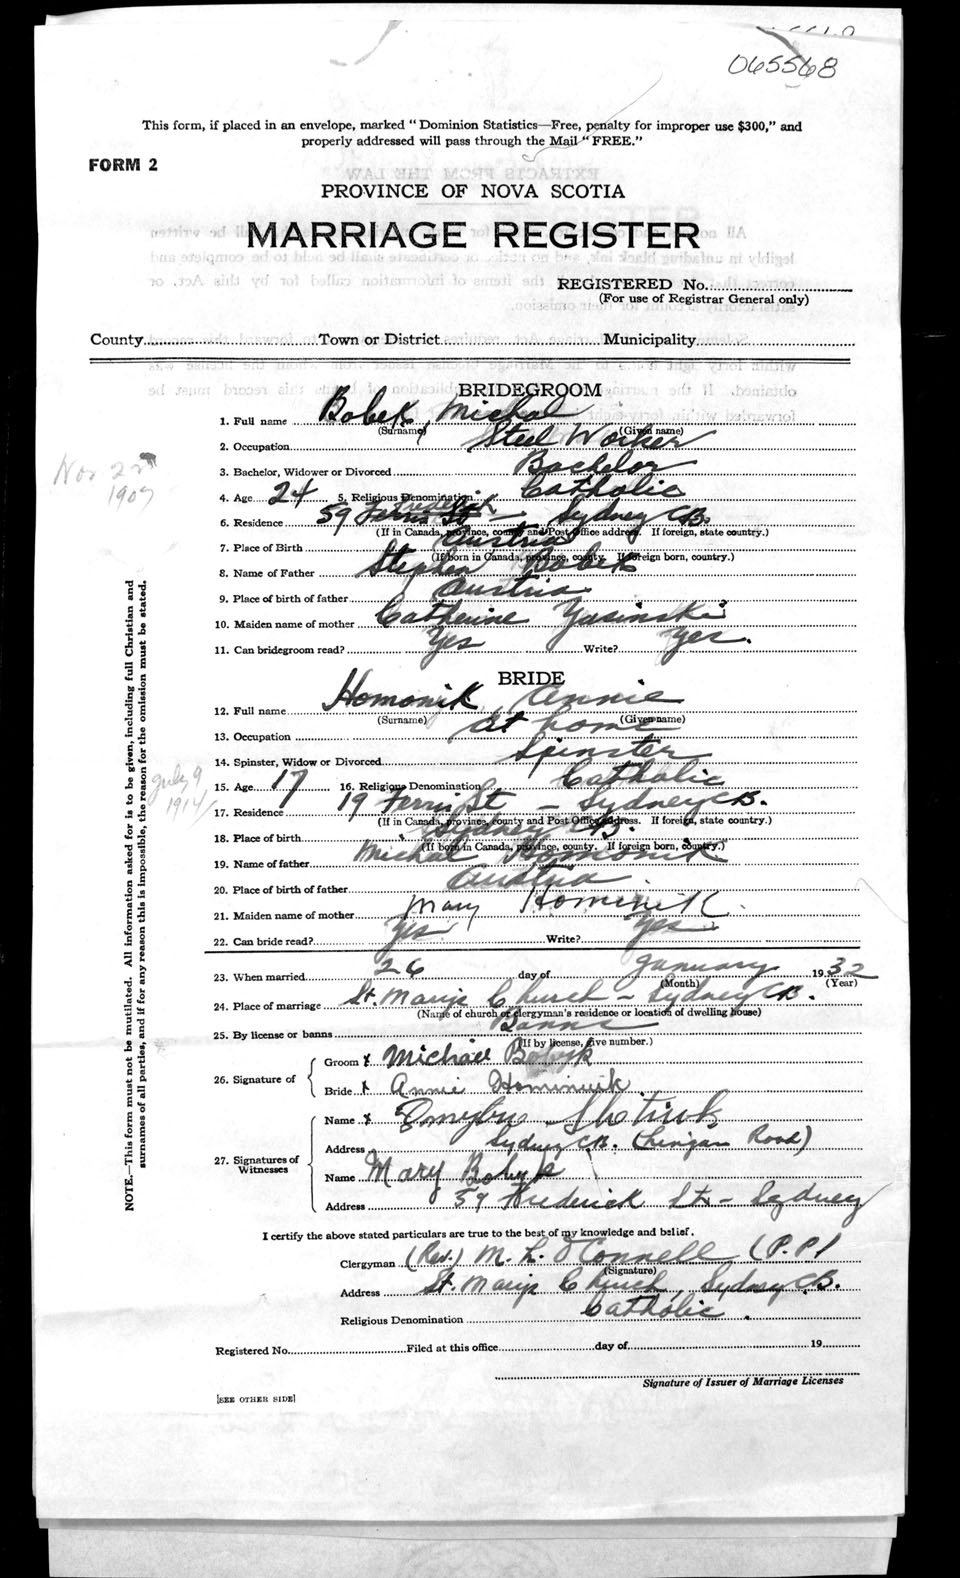 065568
This form, if placed in an envelope, marked "Dominion Statistics—Free, penalty for improper use $300," and
properly addressed will pass through the Mail "FREE."
FORM 2
PROVINCE OF NOVA SCOTIA
MARRIAGE REGISTER
REGISTERED No.
(For use of Registrar General only)
County Town or District Municipality
BRIDEGROOM
1. Full name Bobek, Michal
(Surname) (Given name)
2. Occupation Steel Worker
3. Bachelor, Widower or Divorced Bachelor
Nov 22
1907
4. Age 24 5. Religious Denomination Catholic
Frederick
6. Residence 59 Ferris St — Sydney C.B.
(If in Canada, province, county and Post Office address. If foreign, state country.)
7. Place of Birth Austria
(If born in Canada, province, county. If foreign born, country.)
8. Name of Father Stephen Bobek
9. Place of birth of father Austria
10. Maiden name of mother Catherine Yasinski
11. Can bridegroom read? Yes Write? Yes.
BRIDE
12. Full name Homonik, Annie
(Surname) (Given name)
13. Occupation At home
14. Spinster, Widow or Divorced Spinster
July 9
1914
15. Age 17 16. Religious Denomination Catholic
17. Residence 19 Ferris St — Sydney C.B.
(If in Canada, province, county and Post Office address. If foreign, state country.)
18. Place of birth Sydney C.B.
(If born in Canada, province, county. If foreign born, country.)
19. Name of father Michal Homonik
20. Place of birth of father Austria
21. Maiden name of mother Mary Hominik
22. Can bride read? Yes Write? Yes
23. When married 26 day of January 1932
(Month) (Year)
24. Place of marriage St. Marys Church — Sydney C.B.
(Name of church or clergyman's residence or location of dwelling house)
25. By license or banns Banns
(If by license, give number.)
26. Signature of Groom x Michael Bobyk
Bride x Annie Hominuik
27. Signatures of Witnesses
Name x
Address Sydney C.B. (Lingan Road)
Name Mary Bobyk
Address 59 Frederick St. — Sydney
I certify the above stated particulars are true to the best of my knowledge and belief.
Clergyman (Rev.) M. L. O'Connell (P.P.)
(Signature)
Address St. Marys Church, Sydney C.B.
Religious Denomination Catholic
Registered No. Filed at this office day of 19
Signature of Issuer of Marriage Licenses
[SEE OTHER SIDE]
NOTE.—This form must not be mutilated. All information asked for is to be given, including full Christian and
surnames of all parties, and if for any reason this is impossible, the reason for the omission must be stated.